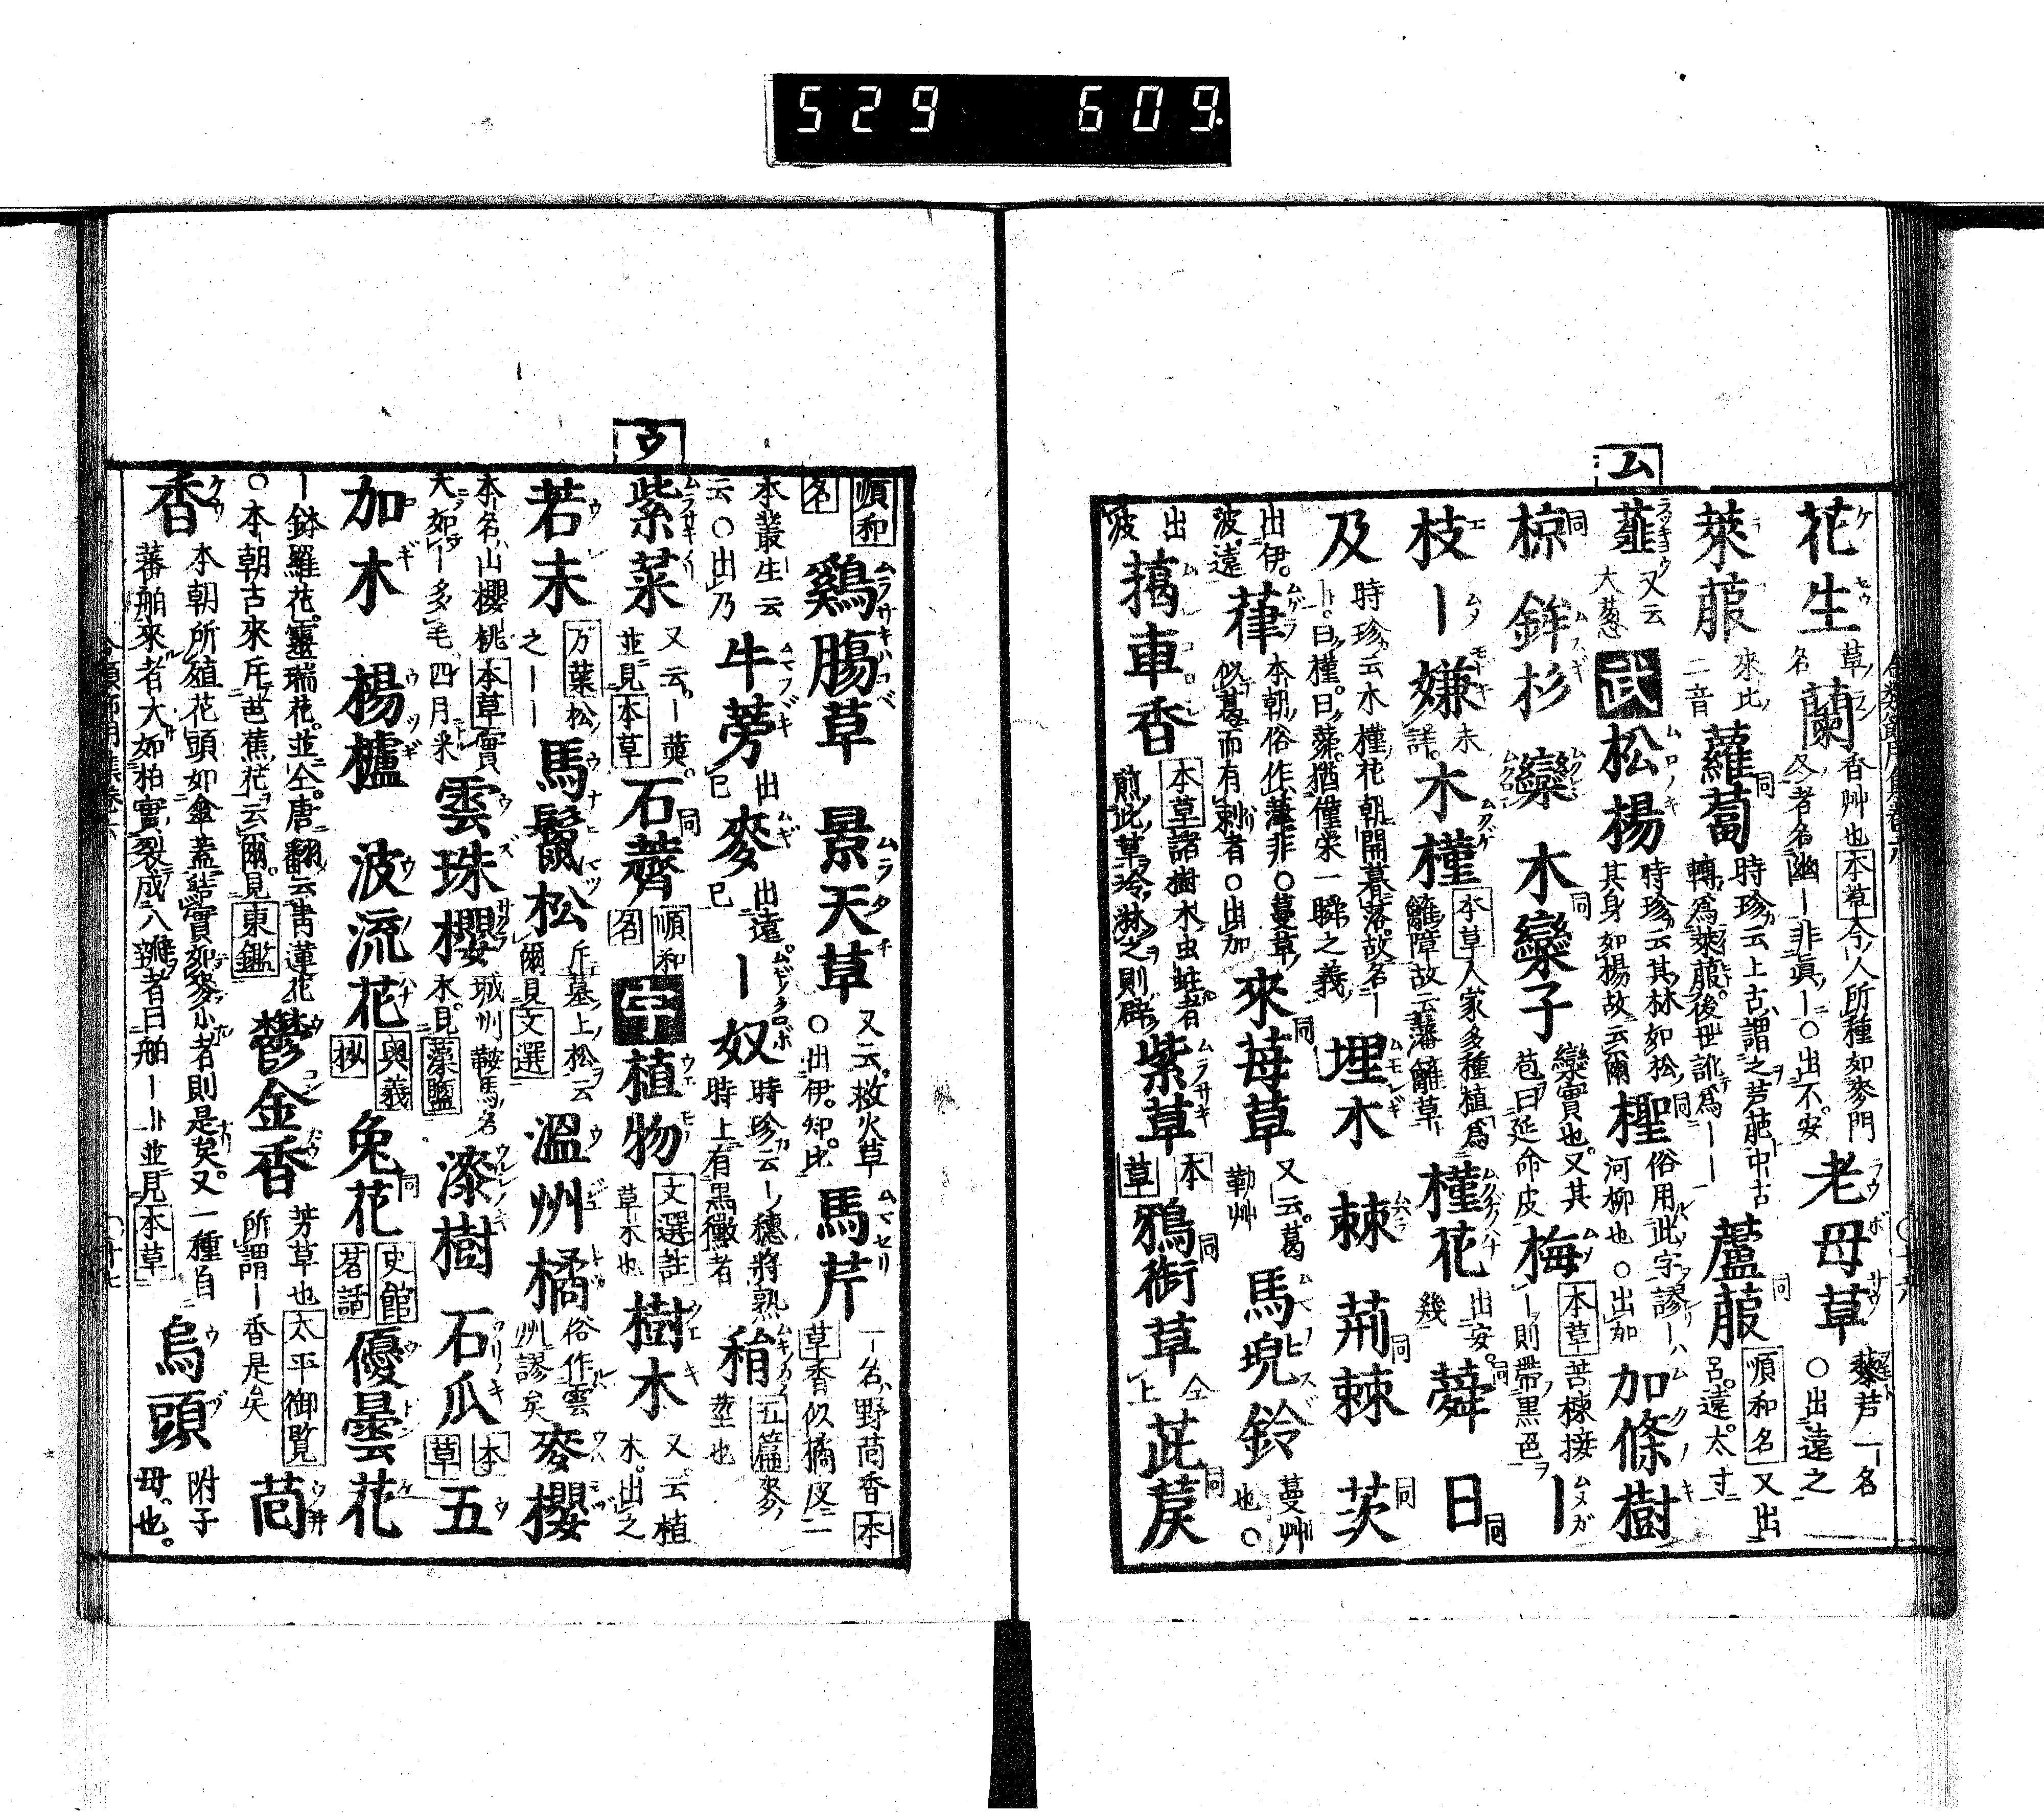 529 609
ム
花生 草名 蘭 香艸也本草今人所種如麥門冬者名幽ー非眞ー○出不安 老母草 藜芦一名○出遠之
萊菔 來比二音 蘿蔔 時珍云上古謂之芦萉中古轉爲萊菔後世訛爲ーー 蘆菔 順和名又出呂遠太寸
薤 又云大葱 武 松楊 時珍云其材如松其身如楊故云爾 檉 俗用此字謬ー河柳也○出加 加條樹
椋 鉾杉 欒 木欒子 欒實也又其苞曰延命皮 梅 本草苦楝接ー則帶黒色 ー
枝ー嫌 未詳 木槿 本草人家多種植爲籬障故云藩籬草 槿花 出安幾 蕣 日
及 時珍云木槿花朝開暮落故名ー曰槿曰蕣猶僅榮一瞬之義 埋木 棘 荊棘 茨
出伊波遠 葎 本朝俗作葎非○蔓草似葛而有刺者○出加 來苺草 又云葛勒艸 馬兜鈴 蔓艸也○
出波 藒車香 本草諸樹木虫蛀者煎此草冷淋之則辟 紫草 本草 鴉銜草 仝上 茈䓞
ウ
順和名 鷄膓草 景天草 又云救火草○出伊知比 馬芹 一名野茴香本草香似橘皮
本叢生云云○出乃 牛蒡 出巳 麥 出遠巳 ー奴 時珍云ー穗將熟時上有黒黴者 䅌 五篇麥莖也
紫菜 又云ー䓲並見本草 石薺 順和名 宇 植物 文選註草木也 樹木 又云植木出之
若末 万葉松之ーー 馬鬣松 斥墓上松云爾見文選 溫州橘 俗作雲州謬矣 麥櫻
本名山櫻桃本草實大如ー多毛四月采 雲珠櫻 城州鞍馬名木見藻鹽 漆樹 石瓜 本草 五
加木 楊櫨 波流花 奥義抄 兔花 史館茗話 優曇花
ー鉢羅花靈瑞花並仝唐翻云書蓮花○本朝古來斥芭蕉花云爾見東鑑 鬱金香 芳草也太平御覧所謂ー香是矣 茴
香 本朝所殖花頭如傘蓋結實如麥小者則是矣又一種自蕃舶來者大如柏實裂成八瓣者曰舶ーー並見本草 烏頭 附子母也